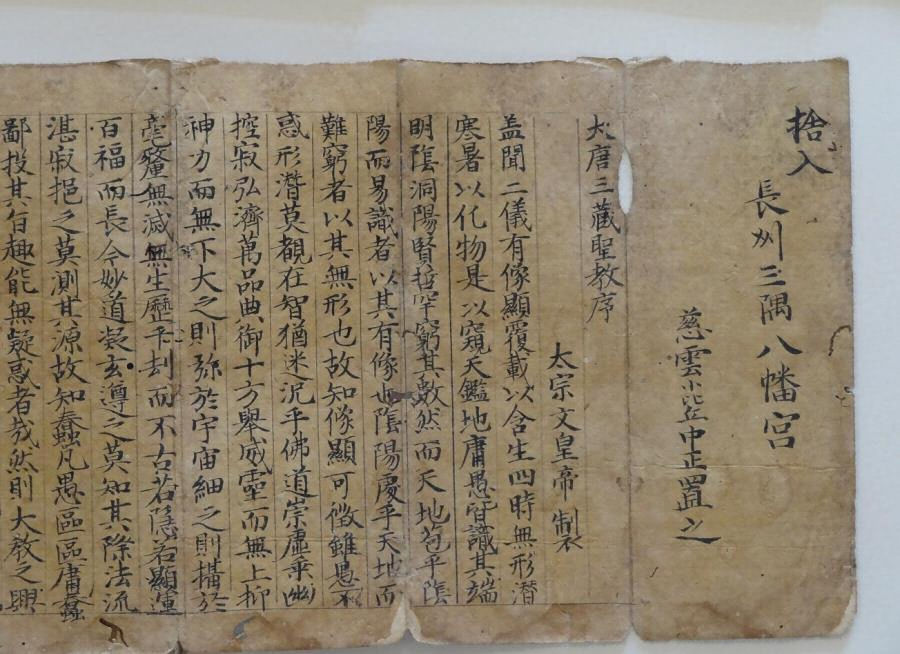 捨入
長州三隅八幡宮
慈雲小比丘中正置之
大唐三藏聖教序
太宗文皇帝製
盖聞二儀有像顯覆載以含生四時無形潜
寒暑以化物是以窺天鑑地庸愚皆識其端
明陰洞陽賢哲罕窮其數然而天地苞乎陰
陽而易識者以其有像也陰陽處乎天地而
難窮者以其無形也故知像顯可徴雖愚不
惑形潜莫覩在智猶迷況乎佛道崇虚乗幽
控寂弘濟萬品曲御十方舉威靈而無上抑
神力而無下大之則弥於宇宙細之則攝於
毫釐無滅無生歴千刧而不古若隱若顯運
百福而長今妙道凝玄遵之莫知其際法流
湛寂挹之莫測其源故知蠢凡愚區區庸蠢
鄙投其旨趣能無疑惑者哉然則大教之興